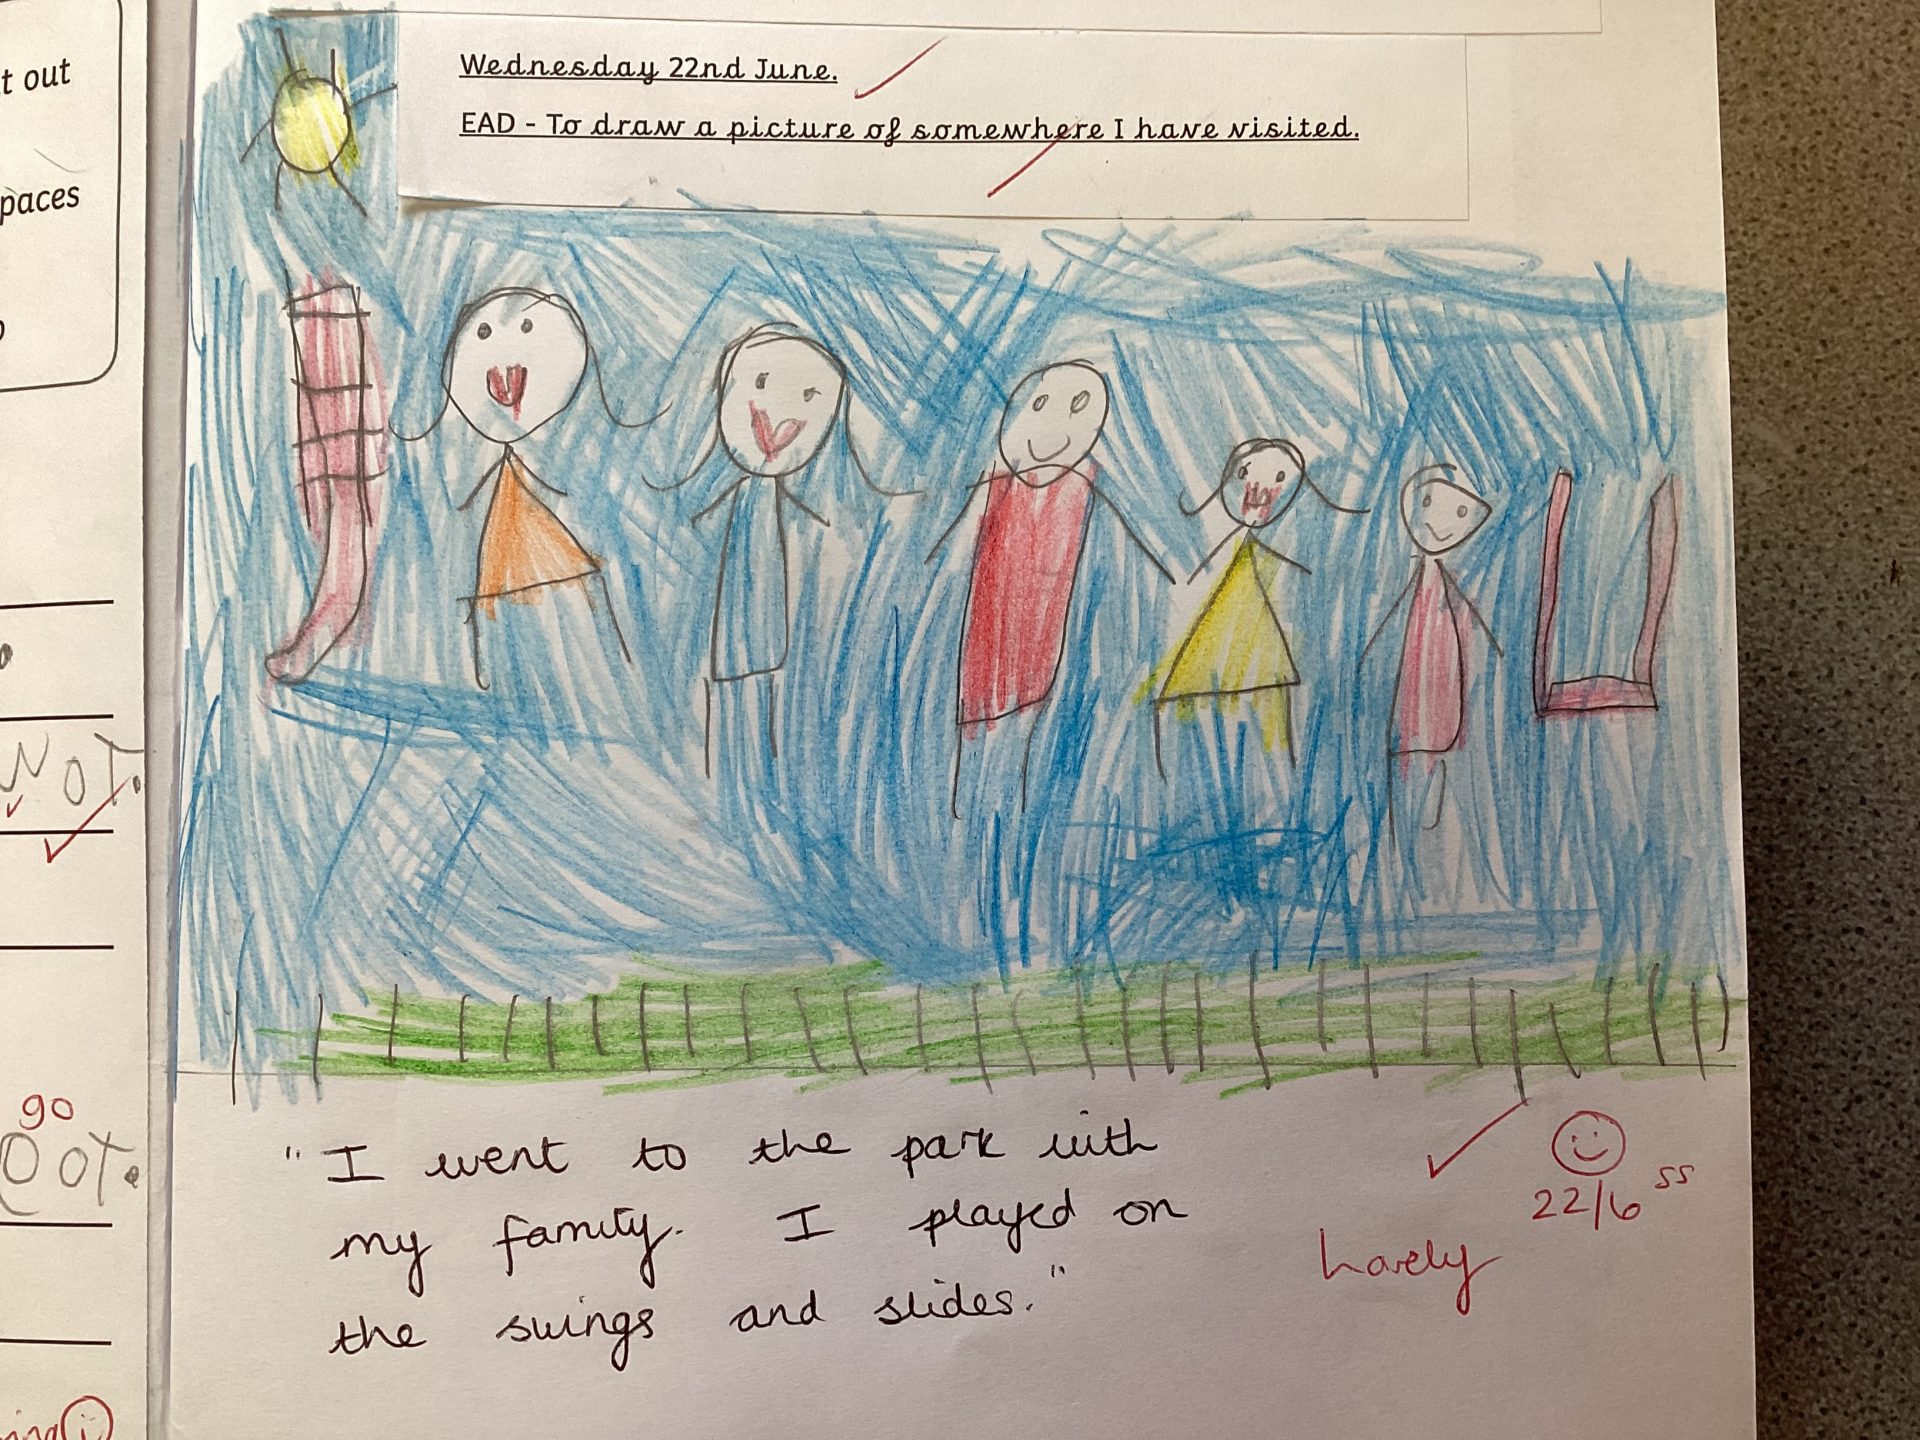 t out
paces
NOT.
go
OOT.
Wednesday 22nd June.
EAD - To draw a picture of somewhere I have visited.
"I went to the park with
my family. I played on
the swings and slides."
22/6 ss
Lovely